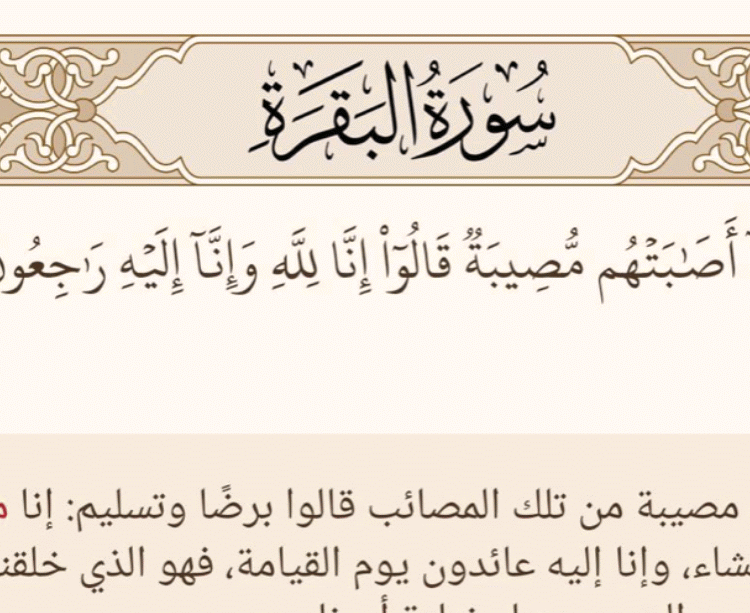 سُورَةُ البَقَرَةِ
أَصَـٰبَتۡهُم مُّصِيبَةٞ قَالُوٓاْ إِنَّا لِلَّهِ وَإِنَّآ إِلَيۡهِ رَٰجِعُون
مصيبة من تلك المصائب قالوا برضًا وتسليم: إنا
شاء، وإنا إليه عائدون يوم القيامة، فهو الذي خلقنا